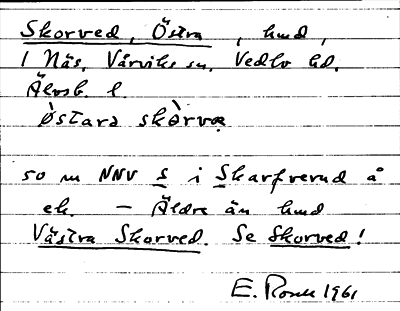 Skorved, Östra, hmd,
1 Näs, Vårviks sn, Vedbo hd.
Älvsb. l.
östara skòrvæ
50 m NNV S i Skarfverud å
ek. – Äldre än hmd
Västra Skorved. Se Skorved!
E. Rosell 1961